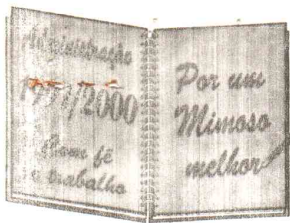 Administração
1997/2000
Com fé
e trabalho
Por um
Mimoso
melhor